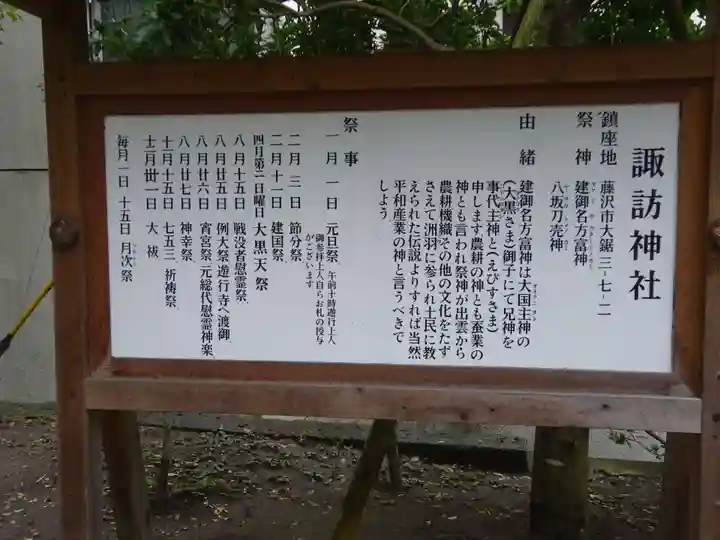 諏訪神社
鎮座地 藤沢市大鋸三-七-二
祭神 建御名方富神
八坂刀売神
由緒 建御名方富神は大国主神の
(大黒さま)御子にて兄神を
事代主神と(えびすさま)
申します農耕の神とも蚕業の
神とも言われ祭神が出雲から
農耕機織その他の文化をたず
さえて洲羽に参られ土民に教
えられた伝説よりすれば当然
平和産業の神と言うべきで
しよう
祭事
一月一日 元旦祭、午前十時遊行上人
御参拝上人自らお札の授与
がございます
二月三日 節分祭
二月十一日 建国祭
四月第二日曜日 大黒天祭
八月十五日 戦没者慰霊祭
八月廿五日 例大祭遊行寺へ渡御
八月廿六日 宵宮祭、元総代慰霊神楽、
八月廿七日 神幸祭
十一月十五日 七五三 祈祷祭
十二月卅一日 大祓
毎月一日 十五日 月次祭